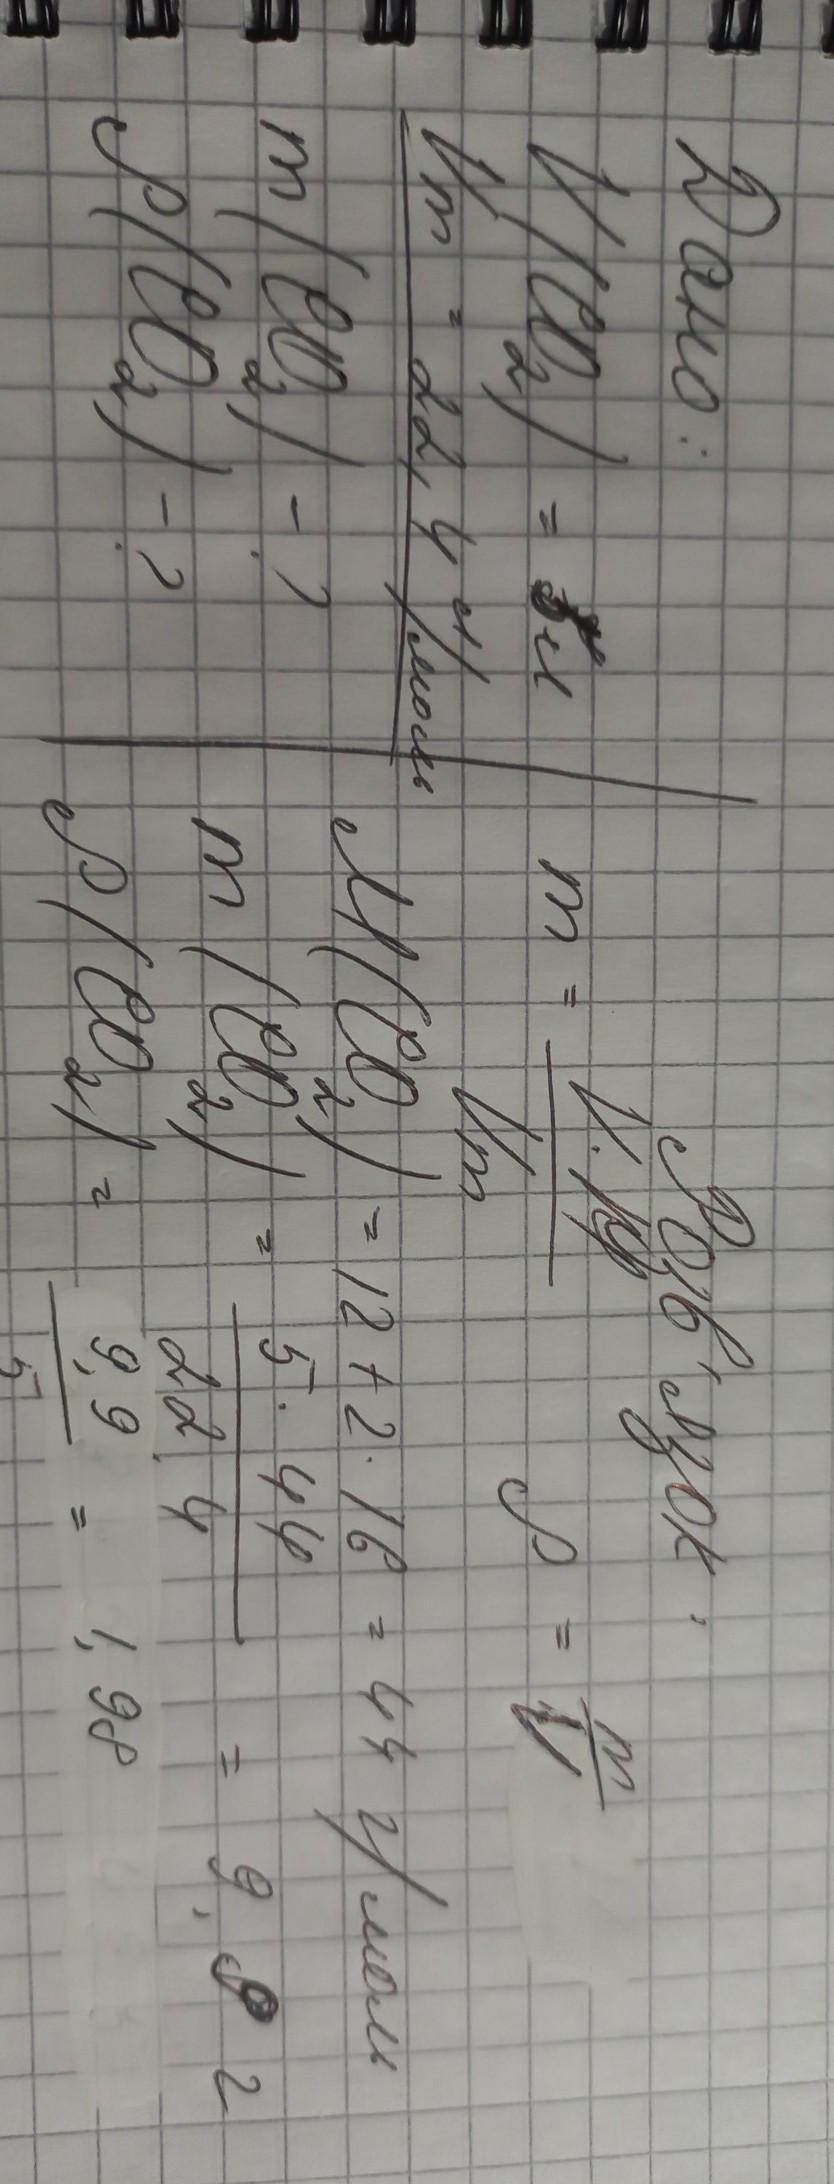 Дано:
V(CO₂) = 5 л
Vm = 22,4 л/моль
m(CO₂) - ?
ρ(CO₂) - ?
Розв'язок:
m = V·M / Vm ρ = m / V
M(CO₂) = 12 + 2·16 = 44 г/моль
m(CO₂) = 5·44 / 22,4 = 9,8 г
ρ(CO₂) = 9,9 / 5 = 1,98